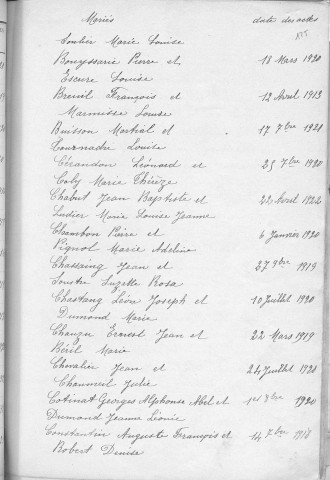 Mariés date des actes
Soulier Marie Louise
Bouyssarie Pierre et 18 Mars 1920
Escure Louise
Breuil François et 12 Avril 1913
Marmisse Louise
Buisson Martial et 17 7bre 1921
Tournadre Louise
Cérandon Léonard et 25 7bre 1920
Coly Marie Thérèze
Chabut Jean Baptiste et 22 Avril 1922
Ludier Marie Louise Jeanne
Chambon Pierre et 6 Janvier 1920
Pignol Marie Adeline
Chassaing Jean et 27 9bre 1919
Soustre Suzette Rosa
Chastang Léon Joseph et 10 Juillet 1920
Dumond Marie
Chauzu Ernest Jean et 22 Mars 1919
Béril Marie
Chevalier Jean et 24 Juillet 1920
Chaumeil Julie
Cotinat Georges Alphonse Abel et 1er 8bre 1920
Dumond Jeanne Léonie
Constantin Auguste François et 14 7bre 1918
Robert Denise